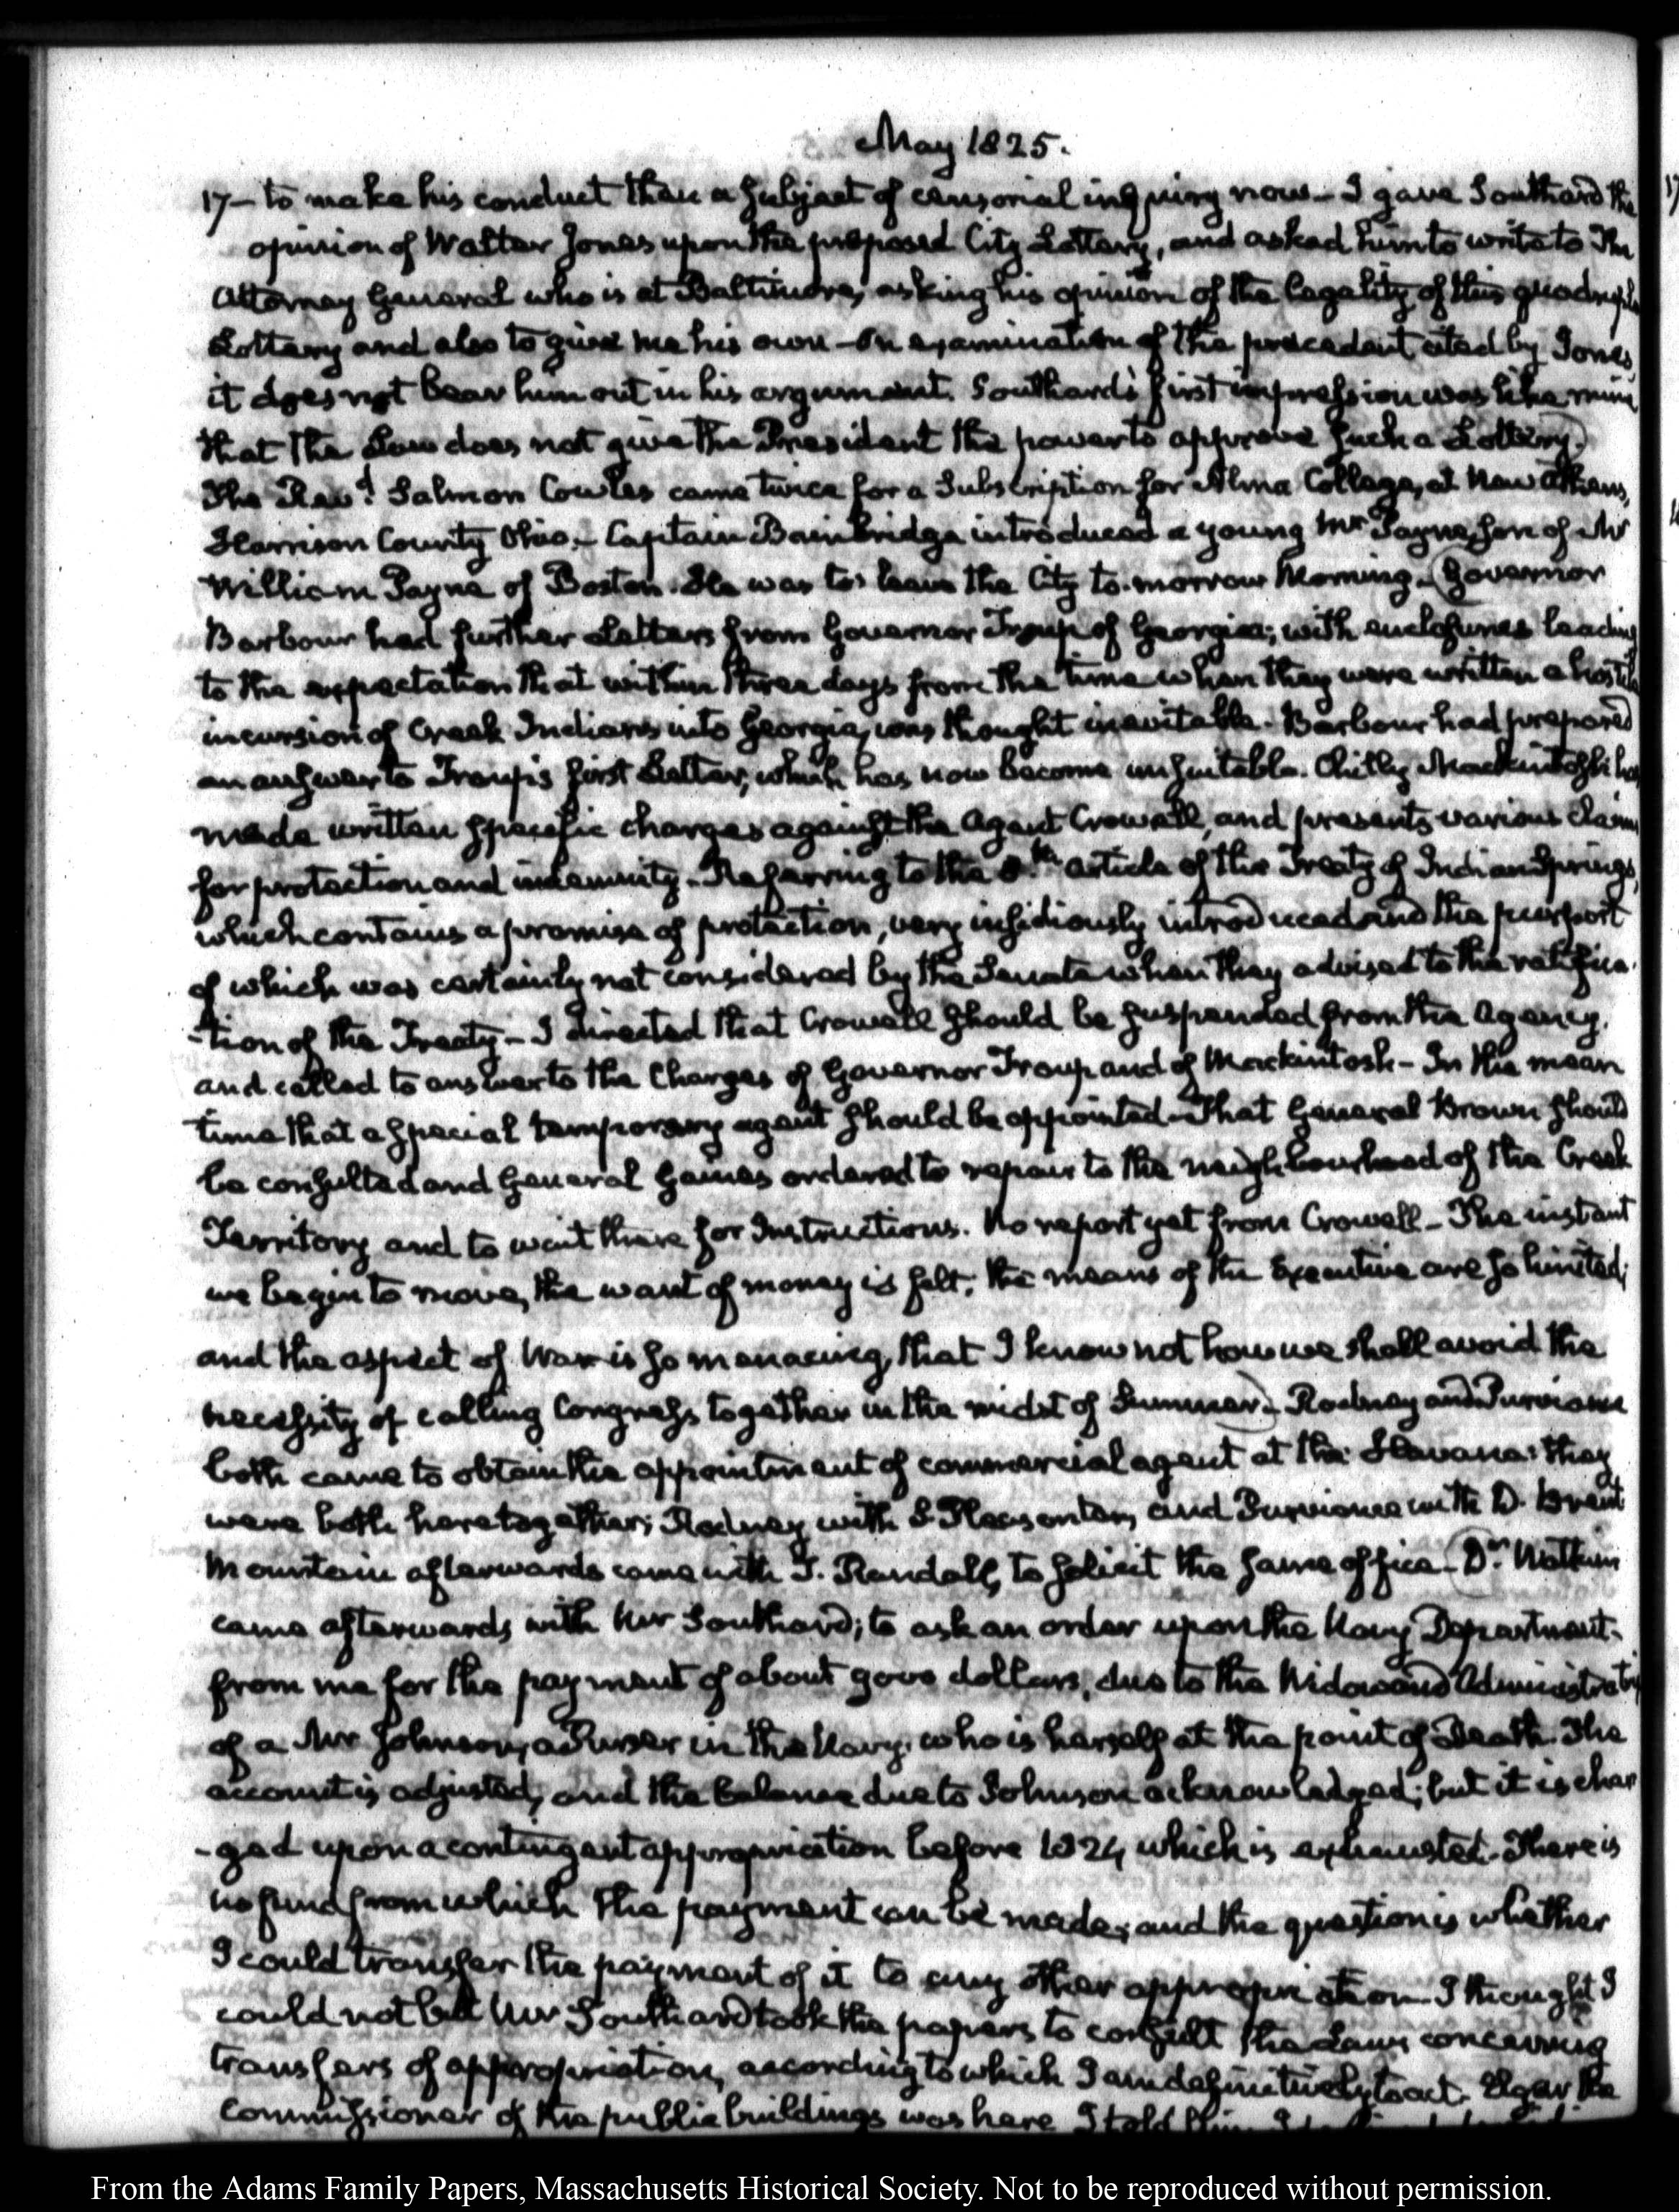 May 1825.
17— to make his conduct then a subject of censorial inquiry now— I gave Southard the
opinion of Walter Jones upon the proposed City Lottery, and asked him to write to the
Attorney General who is at Baltimore, asking his opinion of the legality of this quadruple
Lottery and also to give me his own— On examination of the precedent cited by Jones,
it does not bear him out in his argument. Southard's first impression was like mine
that the Law does not give the President the power to approve such a Lottery.)
The Revd. Salmon Cowles came twice for a Subscription for Alma College, at New Athens,
Harrison County Ohio.— Captain Bainbridge introduced a young Mr Payne, son of Mr
William Payne of Boston. He was to leave the City to-morrow Morning.— (Governor
Barbour had further Letters from Governor Troup of Georgia; with enclosures leading
to the expectation that within three days from the time when they were written a hostile
incursion of Creek Indians into Georgia, was thought inevitable. Barbour had prepared
an answer to Troup's first Letter, which has now become unsuitable. Chilly Mackintosh has
made written specific charges against the Agent Crowell, and presents various claims
for protection and indemnity— Referring to the 8th. article of the Treaty of Indian Springs,
which contains a promise of protection, very insidiously introduced and the purport
of which was certainly not considered by the Senate when they advised to the ratifica-
-tion of the Treaty— I directed that Crowell should be suspended from the Agency.
and called to answer to the Charges of Governor Troup and of Mackintosh— In the mean
time that a special temporary agent should be appointed— That General Brown should
be consulted and General Gaines ordered to repair to the neighbourhood of the Creek
Territory and to wait there for Instructions. No report yet from Crowell— The instant
we begin to move, the want of money is felt; the means of the Executive are so limited;
and the aspect of War is so menacing, that I know not how we shall avoid the
necessity of calling Congress together in the midst of Summer.)— Rodney and Purviance
both came to obtain the appointment of commercial agent at the Havana: they
were both here together; Rodney with S. Pleasonton, and Purviance with D. Brent
Mountain afterwards came with T. Randall, to solicit the same office— (Dr. Watkins
came afterwards with Mr Southard; to ask an order upon the Navy Department
from me for the payment of about 9000 dollars, due to the Widow and Administratrix
of a Mr Johnson, a Purser in the Navy, who is herself at the point of Death. The
account is adjusted, and the balance due to Johnson acknowledged; but it is char
-ged upon a contingent appropriation before 1824 which is exhausted. There is
no fund from which the payment can be made; and the question is whether
I could transfer the payment of it to any other appropriation. I thought I
could not but Mr Southard took the papers to consult the Laws concerning
transfers of appropriation, according to which I am definitively to act. Elgar the
Commissioner of the public buildings was here I told him I
From the Adams Family Papers, Massachusetts Historical Society. Not to be reproduced without permission.